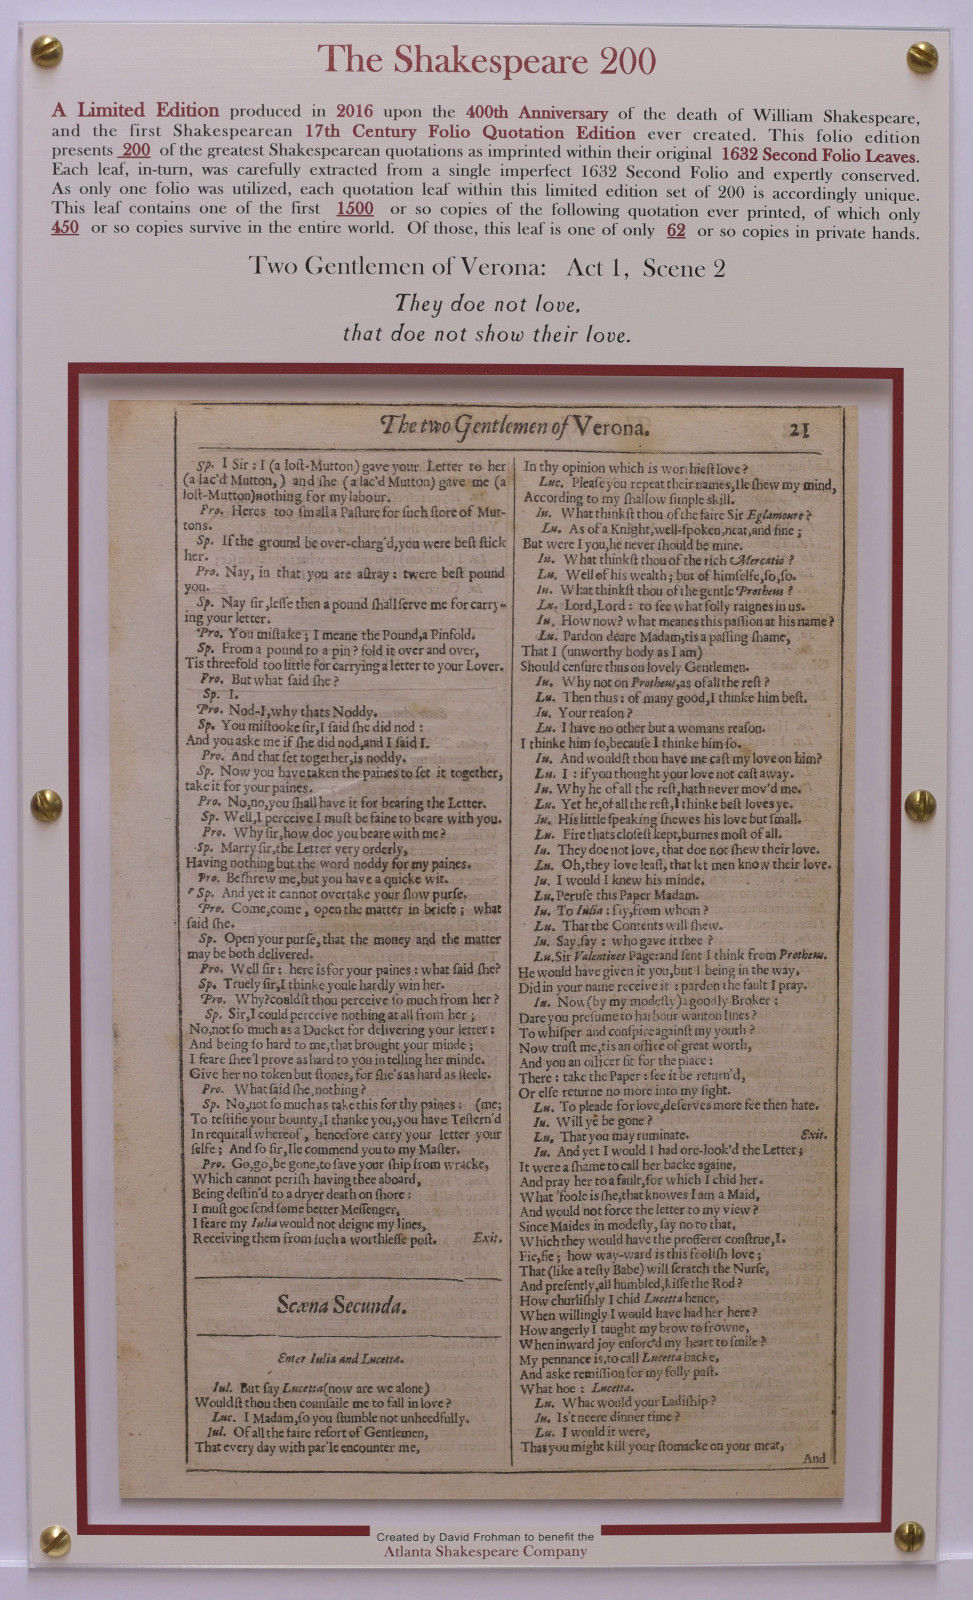 The Shakespeare 200
A Limited Edition produced in 2016 upon the 400th Anniversary of the death of William Shakespeare,
and the first Shakespearean 17th Century Folio Quotation Edition ever created. This folio edition
presents 200 of the greatest Shakespearean quotations as imprinted within their original 1632 Second Folio Leaves.
Each leaf, in-turn, was carefully extracted from a single imperfect 1632 Second Folio and expertly conserved.
As only one folio was utilized, each quotation leaf within this limited edition set of 200 is accordingly unique.
This leaf contains one of the first 1500 or so copies of the following quotation ever printed, of which only
450 or so copies survive in the entire world. Of those, this leaf is one of only 62 or so copies in private hands.
Two Gentlemen of Verona: Act 1, Scene 2
They doe not love,
that doe not show their love.
The two Gentlemen of Verona. 21
Sp. I Sir : I (a loſt-Mutton) gave your Letter to her
(a lac'd Mutton,) and ſhe (a lac'd Mutton) gave me (a
loſt-Mutton) nothing for my labour.
Pro. Heres too ſmall a Paſture for ſuch ſtore of Mut-
tons.
Sp. If the ground be over-charg'd, you were beſt ſtick
her.
Pro. Nay, in that you are aſtray : twere beſt pound
you.
Sp. Nay ſir, leſſe then a pound ſhall ſerve me for carry-
ing your letter.
Pro. You miſtake ; I meane the Pound, a Pinfold.
Sp. From a pound to a pin ? fold it over and over,
Tis threefold too little for carrying a letter to your Lover.
Pro. But what ſaid ſhe ?
Sp. I.
Pro. Nod-I, why thats Noddy.
Sp. You miſtooke ſir, I ſaid ſhe did nod :
And you aske me if ſhe did nod, and I ſaid I.
Pro. And that ſet together, is noddy.
Sp. Now you have taken the paines to ſet it together,
take it for your paines.
Pro. No, no, you ſhall have it for bearing the Letter.
Sp. Well, I perceive I muſt be faine to beare with you.
Pro. Why ſir, how doe you beare with me ?
Sp. Marry ſir, the Letter very orderly,
Having nothing but the word noddy for my paines.
Pro. Beſhrew me, but you have a quicke wit.
Sp. And yet it cannot overtake your ſlow purſe.
Pro. Come, come, open the matter in briefe ; what
ſaid ſhe.
Sp. Open your purſe, that the money and the matter
may be both delivered.
Pro. Well ſir : here is for your paines : what ſaid ſhe?
Sp. Truely ſir, I thinke youle hardly win her.
Pro. Why? couldſt thou perceive ſo much from her ?
Sp. Sir, I could perceive nothing at all from her ;
No, not ſo much as a Ducket for delivering your letter :
And being ſo hard to me, that brought your minde ;
I feare ſhee'l prove as hard to you in telling her minde.
Give her no token but ſtones, for ſhe's as hard as ſteele.
Pro. What ſaid ſhe, nothing ?
Sp. No, not ſo much as take this for thy paines : (me;
To teſtifie your bounty, I thanke you, you have Teſtern'd
In requitall whereof, henceforе carry your letter your
ſelfe ; And ſo ſir, Ile commend you to my Maſter.
Pro. Go, go, be gone, to ſave your ſhip from wracke,
Which cannot periſh having thee aboard,
Being deſtin'd to a dryer death on ſhore :
I muſt goe ſend ſome better Meſſenger,
I feare my Iulia would not deigne my lines,
Receiving them from ſuch a worthleſſe poſt. Exit.
Scæna Secunda.
Enter Iulia and Lucetta.
Iul. But ſay Lucetta (now are we alone)
Wouldſt thou then counſaile me to fall in love ?
Luc. I Madam, ſo you ſtumble not unheedfully.
Iul. Of all the faire reſort of Gentlemen,
That every day with par'le encounter me,
In thy opinion which is worthieſt love ?
Luc. Pleaſe you repeat their names, Ile ſhew my mind,
According to my ſhallow ſimple skill.
Iu. What thinkſt thou of the faire Sir Eglamoure ?
Lu. As of a Knight, well-ſpoken, neat, and fine ;
But were I you, he never ſhould be mine.
Iu. What thinkſt thou of the rich Mercatio ?
Lu. Well of his wealth ; but of himſelfe, ſo, ſo.
Iu. What thinkſt thou of the gentle Protheus ?
Lu. Lord, Lord : to ſee what folly raignes in us.
Iu. How now ? what meanes this paſſion at his name ?
Lu. Pardon deare Madam, tis a paſſing ſhame,
That I (unworthy body as I am)
Should cenſure thus on lovely Gentlemen.
Iu. Why not on Protheus, as of all the reſt ?
Lu. Then thus : of many good, I thinke him beſt.
Iu. Your reaſon ?
Lu. I have no other but a womans reaſon.
I thinke him ſo, becauſe I thinke him ſo.
Iu. And wouldſt thou have me caſt my love on him?
Lu. I : if you thought your love not caſt away.
Iu. Why he of all the reſt, hath never mov'd me.
Lu. Yet he, of all the reſt, I thinke beſt loves ye.
Iu. His little ſpeaking ſhewes his love but ſmall.
Lu. Fire thats cloſeſt kept, burnes moſt of all.
Iu. They doe not love, that doe not ſhew their love.
Lu. Oh, they love leaſt, that let men know their love.
Iu. I would I knew his minde.
Lu. Peruſe this Paper Madam.
Iu. To Iulia : ſay, from whom ?
Lu. That the Contents will ſhew.
Iu. Say, ſay : who gave it thee ?
Lu. Sir Valentines Page: and ſent I think from Protheus.
He would have given it you, but I being in the way,
Did in your name receive it : pardon the fault I pray.
Iu. Now (by my modeſty) a goodly Broker :
Dare you preſume to harbour wanton lines ?
To whiſper and conſpire againſt my youth ?
Now truſt me, tis an office of great worth,
And you an officer fit for the place :
There : take the Paper : ſee it be return'd,
Or elſe returne no more into my ſight.
Lu. To pleade for love, deſerves more fee then hate.
Iu. Will ye be gone ?
Lu. That you may ruminate. Exit.
Iu. And yet I would I had ore-look'd the Letter ;
It were a ſhame to call her backe againe,
And pray her to a fault, for which I chid her.
What 'foole is ſhe, that knowes I am a Maid,
And would not force the letter to my view ?
Since Maides in modeſty, ſay no to that,
Which they would have the profferer conſtrue, I.
Fie, fie ; how way-ward is this fooliſh love ;
That (like a teſty Babe) will ſcratch the Nurſe,
And preſently, all humbled, kiſſe the Rod ?
How churliſhly I chid Lucetta hence,
When willingly I would have had her here ?
How angerly I taught my brow to frowne,
When inward joy enforc'd my heart to ſmile ?
My pennance is, to call Lucetta backe,
And aske remiſſion for my folly paſt.
What hoe : Lucetta.
Lu. What would your Ladiſhip ?
Iu. Is't neere dinner time ?
Lu. I would it were,
That you might kill your ſtomacke on your meat,
And
Created by David Frohman to benefit the
Atlanta Shakespeare Company